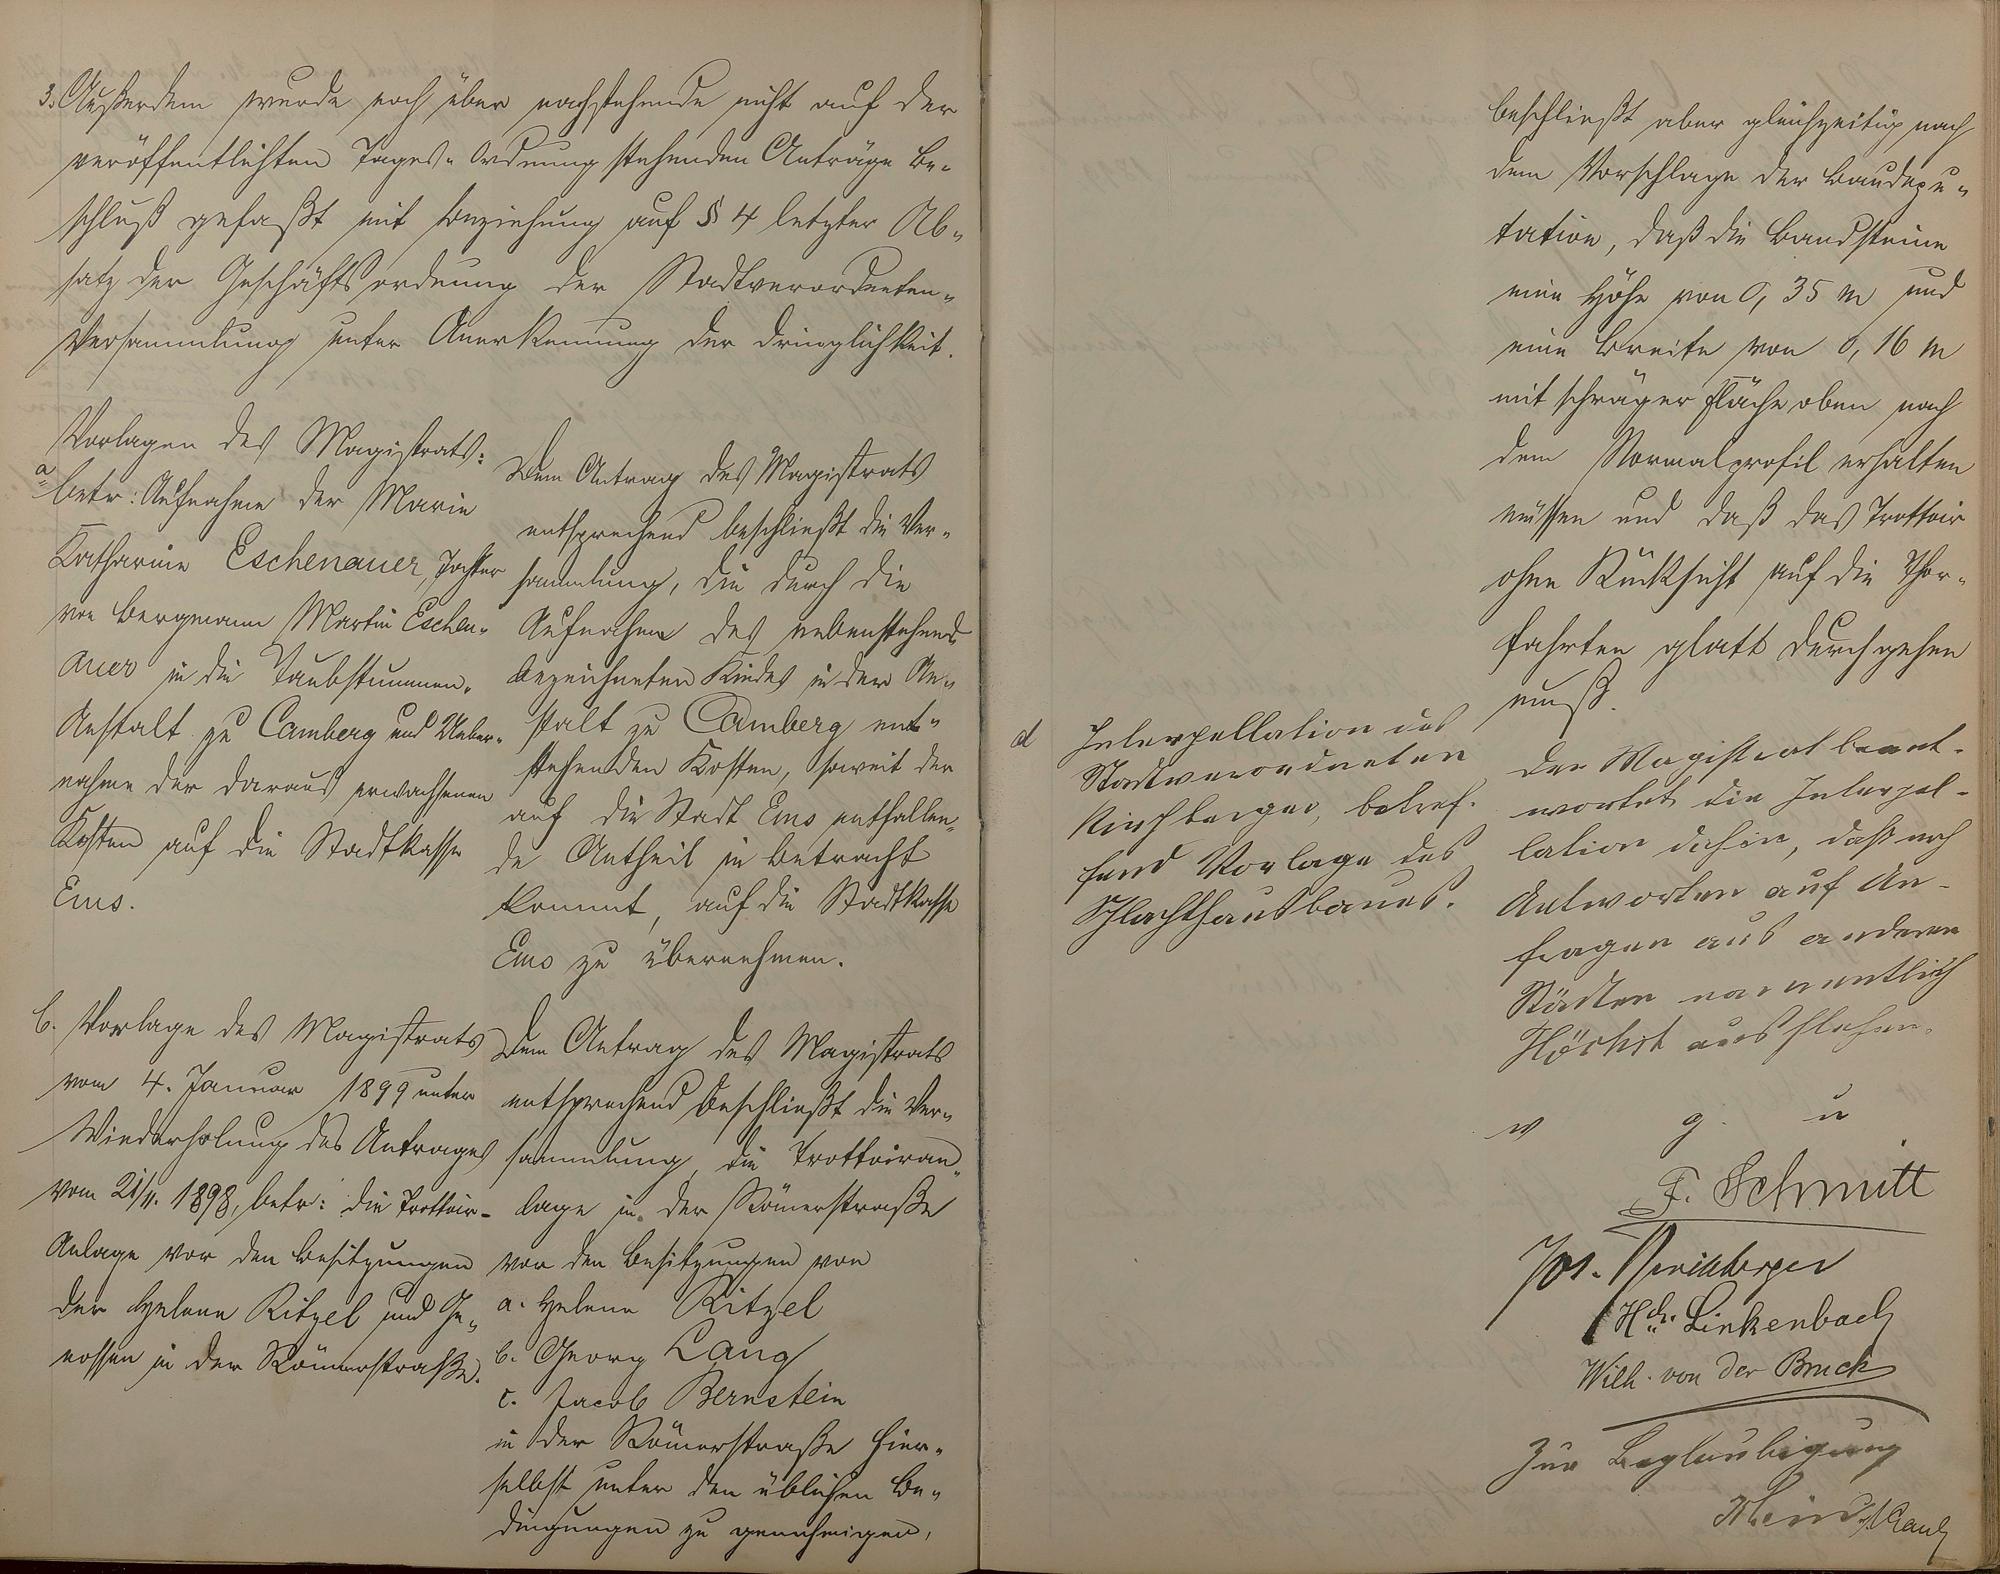 3. Außerdem wurde noch über nachstehende nicht auf der
veröffentlichten Tages-Ordnung stehenden Anträge Be-
schluß gefaßt mit Beziehung auf § 4 letzter Ab-
satz der Geschäftsordnung der Stadtverordneten-
Versammlung unter Anerkennung der Dringlichkeit.
Vorlagen des Magistrats:
a betr: Aufnahme der Marie
Katharine Eschenauer, Tochter
von Bergmann Martin Eschen-
auer in die Taubstummen-
Anstalt zu Camberg und Ueber-
nahme der daraus erwachsenen
Kosten auf die Stadtkasse
Ems.
Dem Antrag des Magistrats
entsprechend beschließt die Ver-
sammlung, die durch die
Aufnahme des nebenstehend
bezeichneten Kindes in der An-
stalt zu Camberg ent-
stehenden Kosten, soweit der
auf die Stadt Ems entfallen-
de Antheil in Betracht
kommt, auf die Stadtkasse
Ems zu übernehmen.
b. Vorlage des Magistrats
vom 4. Januar 1899 unter
Wiederholung des Antrages
vom 21/11. 1898, betr: die Trottoir-
Anlage vor den Besitzungen
der Helene Ritzel und Ge-
nossen in der Römerstraße.
Dem Antrag des Magistrats
entsprechend beschließt die Ver-
sammlung, die Trottoiran-
lage in der Römerstraße
vor den Besitzungen von
a. Helene Ritzel
b. Georg Lang
c. Jacob Bernstein
in der Römerstraße hier-
selbst unter den üblichen Be-
dingungen zu genehmigen,
beschließt aber gleichzeitig nach
dem Vorschlage der Baudepu-
tation, daß die Bandsteine
eine Höhe von 0,35 m und
eine Breite von 0,16 m
mit schräger Fläche oben nach
dem Normalprofil erhalten
müssen und daß das Trottoir
ohne Rücksicht auf die Thor-
fahrten glatt durchgehen
muß.
d Interpellation des
Stadtverordneten
Kirchberger, betref-
fend Vorlage des
Schlachthausbaues.
Der Magistrat beant-
wortet die Interpel-
lation dahin, daß noch
Antworten auf An-
fragen aus anderen
Städten namentlich
Höchst ausstehen.
v g. u
F. Schmitt
Jos. Kirchberger
Hch. Linkenbach
Wilh. von der Bruck
Zur Beglaubigung